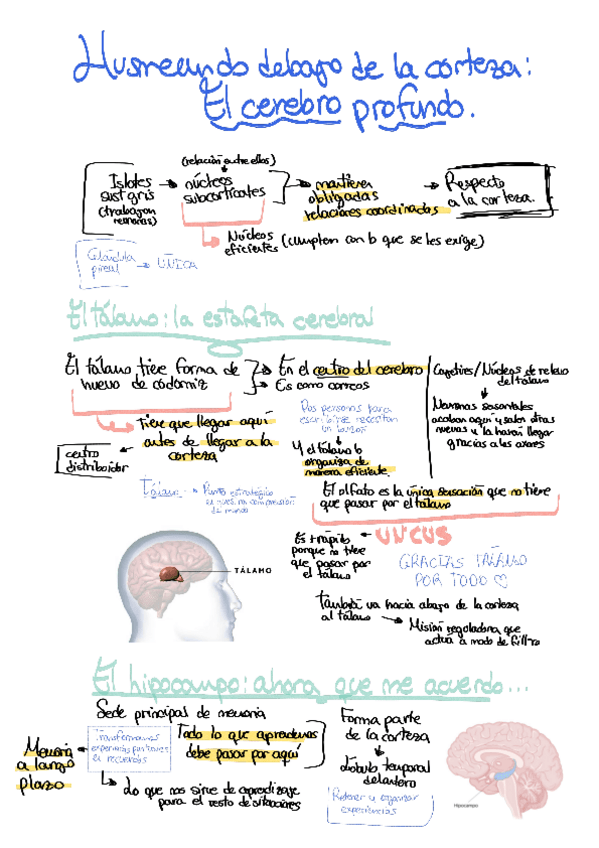 Husmeando debajo de la corteza:
El cerebro profundo.
(relación entre ellos)
Islotes
sust gris
(trabajan
neuronas)
núcleos
subcorticales
mantienen
obligadas
relaciones coordinadas
Respecto
a la corteza.
Núcleos
eficientes (cumplen con lo que se les exige)
Glándula
pineal
ÚNICA
El tálamo: la estafeta cerebral
El tálamo tiene forma de
huevo de codorniz
En el centro del cerebro
Es como correos
Núcleos de relevo
del tálamo
Tiene que llegar aquí
antes de llegar a la
corteza
centro
distribuidor
Dos personas para
escribirse necesitan
un
Y el tálamo lo
organiza de
manera eficiente.
Neuronas
acaban aquí y salen otras
nuevas y la hacen llegar
gracias a los axones
Tálamo
Punto estratégico
en nuestra comprensión
de mundo
El olfato es la única sensación que no tiene
que pasar por el tálamo
UNCUS
Es + rápido
porque no tiene
que pasar por
el tálamo
GRACIAS TÁLAMO
POR TODO ♡
TÁLAMO
También va hacia abajo de la corteza
al tálamo
Misión reguladora que
actúa a modo de filtro
El hipocampo: ahora que me acuerdo...
Sede principal de memoria
Transformamos
experiencias
en recuerdos
Todo lo que aprendemos
debe pasar por aquí
Memoria
a largo
plazo
Lo que nos sirve de aprendizaje
para el resto de situaciones
Forma parte
de la corteza
lóbulo temporal
Retener y organizar
experiencias
Hipocampo